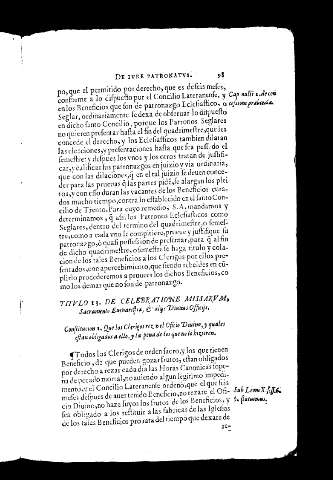 DE IVRE PATRONATVS. 98
po, que el permitido por derecho, que es de seis meses,
conforme a lo dispuesto por el Concilio Lateranense, y
en los Beneficios que son de patronazgo Eclesiastico, o
Seglar, ordinariamente se dexa de obseruar lo dispuesto
en dicho santo Concilio, porque los Patronos Seglares
no quieren presentar hasta el fin del quadrimestre, que les
concede el derecho, y los Eclesiasticos tambien dilatan
las elecciones, y presentaciones hasta que sea passado el
semestre: y despues los vnos y los otros tratan de justifi-
car, y calificar los patronazgos en juizio y via ordinaria,
que con las dilaciones, q̃ en el tal juizio se deuen conce-
der para las prueuas q̃ las partes pidē, se alargan los plei
tos, y con esto duran las vacantes de los Beneficios
dos mucho tiempo, contra lo establecido en el santo Con-
cilio de Trento. Para cuyo remedio, S. A. mandamos y
determinamos, q̃ assi los Patronos Eclesiasticos como
Seglares, dentro del termino del quadrimestre, o semes-
tre, como a cada vno le compitiere, prueue y justifique su
patronazgo, o quasi possession de presentar, para q̃ al fin
de dicho quadrimestre, o semestre se haga titulo y cola-
cion de los tales Beneficios a los Clerigos por ellos pre-
sentados, con apercebimiento, que siendo rebeldes en cū-
plirlo procederemos a proueer los dichos Beneficios, co
mo los demas que no son de patronazgo.
Cap. nulli 2. de con
cessione præbendæ.
TITVLO 13. DE CELEBRATIONE MISSARVM,
Sacramento Eucharistiæ, & alijs Diuinis Officijs.
Constitucion 1. Que los Clerigos rezen el Oficio Diuino, y quales
estan obligados a ello, y la pena de los que no lo hizieren.
¶ Todos los Clerigos de orden sacro, y los que tienen
Beneficio, de que pueden gozar frutos, estan obligados
por derecho a rezar cada dia las Horas Canonicas so pe-
na de pecado mortal, no auiendo algun legitimo impedi-
mento, y el Concilio Lateranense ordenò, que el que seis
meses despues de auer tenido Beneficio, no rezare el Ofi-
cio Diuino, no haze suyos los frutos de los Beneficios, y
sea obligado a los restituir a las fabricas de las Iglesias
de los tales Beneficios pro rata del tiempo que dexare de
Sub Leone X. sess. 9.
§. statuimus.
re-